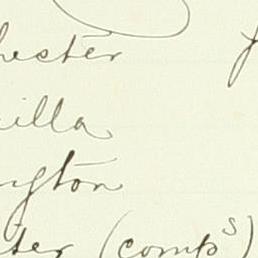 hester
illa
ngton
ster (comps)